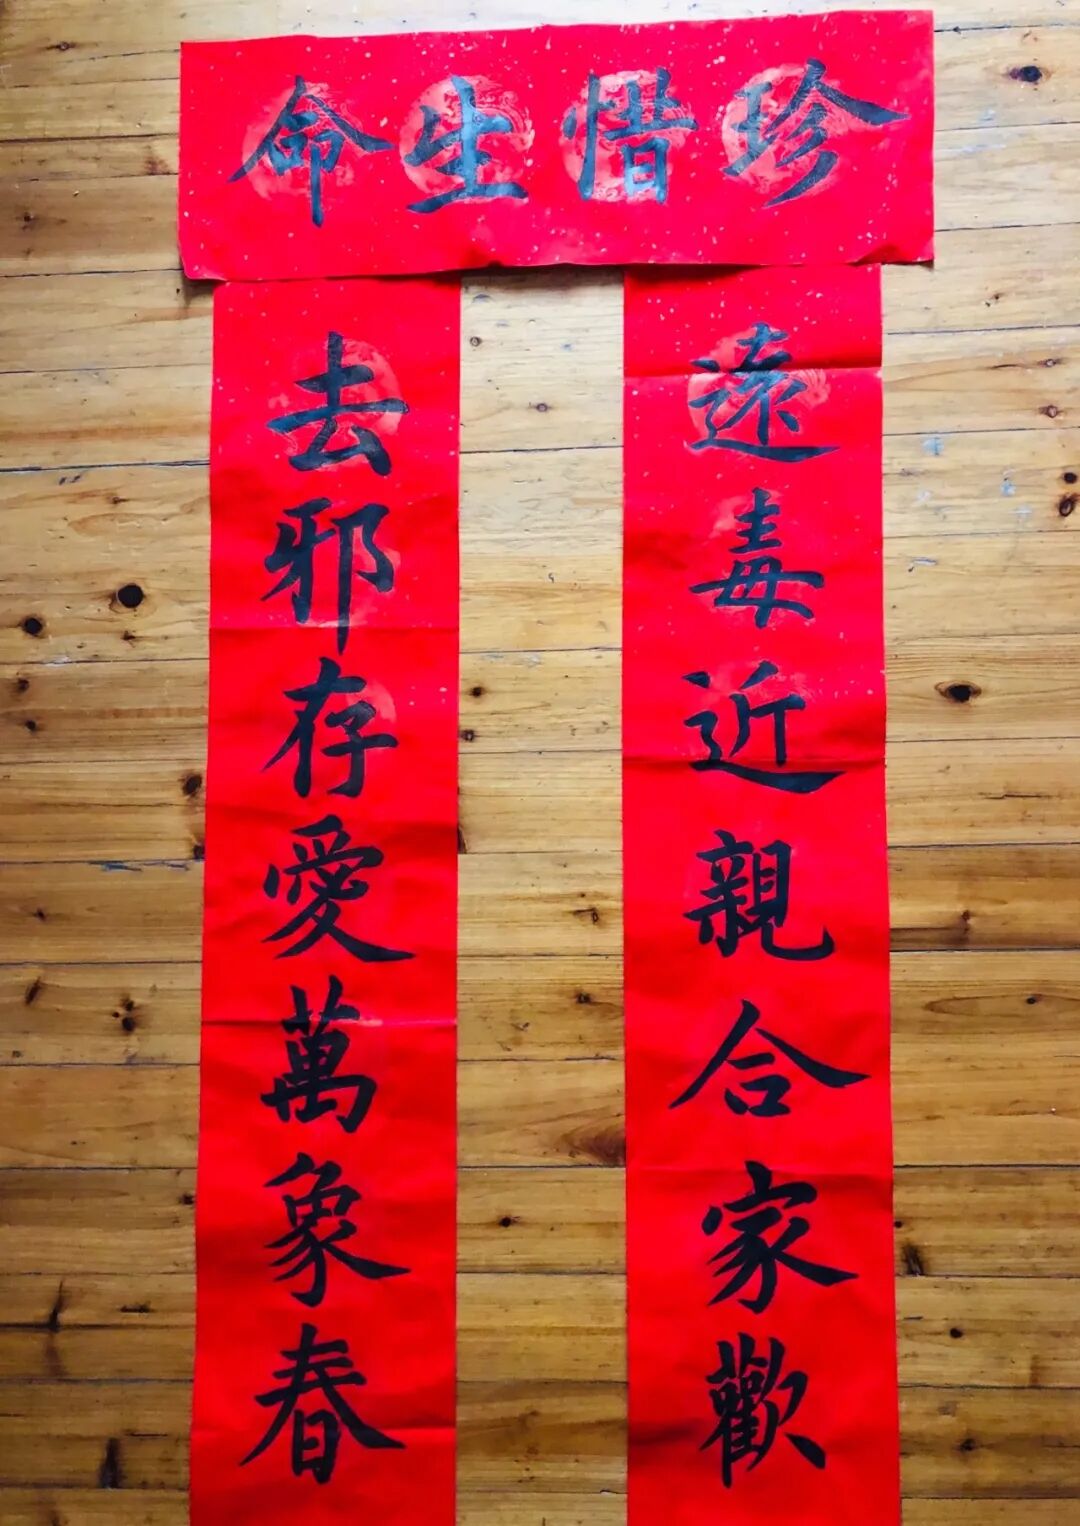 珍惜生命
遠毒近親合家歡
去邪存愛萬象春